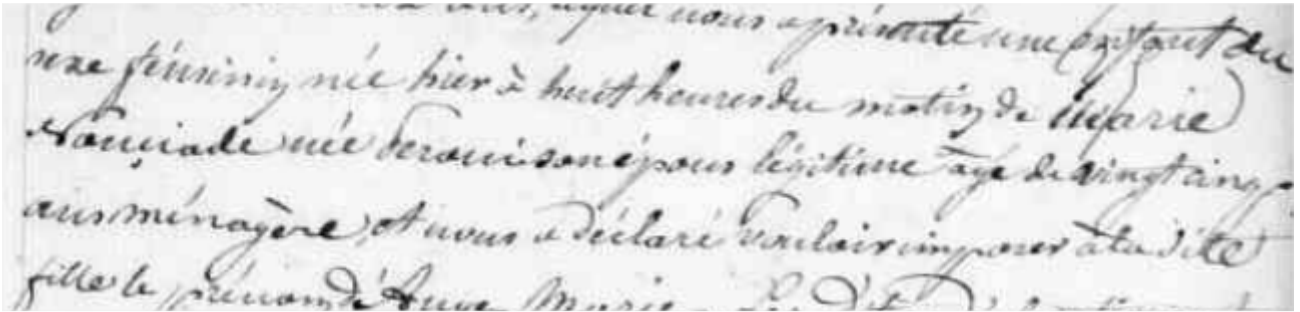 nous a présenté une enfant du
sexe féminin née hier à huit heures du matin de Marie
Nonciade née son épous légitime âgé de vingt cinq
ans ménagère, et nous a déclaré vouloir imposer à la dite
fille le prénom de Anne Marie